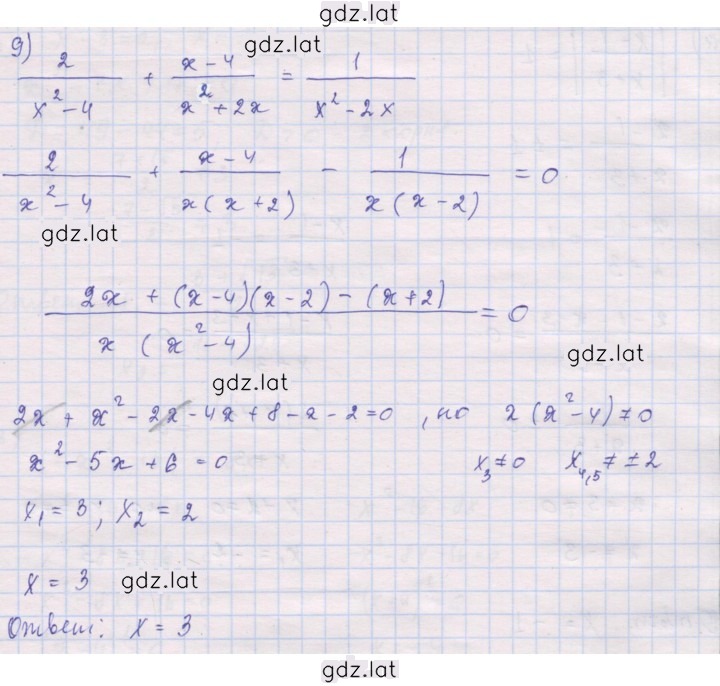 gdz.lat
g)
gdz.lat
2/(x²-4) + (x-4)/(x²+2x) = 1/(x²-2x)
2/(x²-4) + (x-4)/(x(x+2)) - 1/(x(x-2)) = 0
gdz.lat
(2x + (x-4)(x-2) - (x+2))/(x(x²-4)) = 0
gdz.lat
gdz.lat
2x + x² - 2x - 4x + 8 - x - 2 = 0, но x(x²-4) ≠ 0
x² - 5x + 6 = 0 x₃ ≠ 0 x₄,₅ ≠ ±2
x₁ = 3; x₂ = 2
x = 3 gdz.lat
Ответ: x = 3
gdz.lat